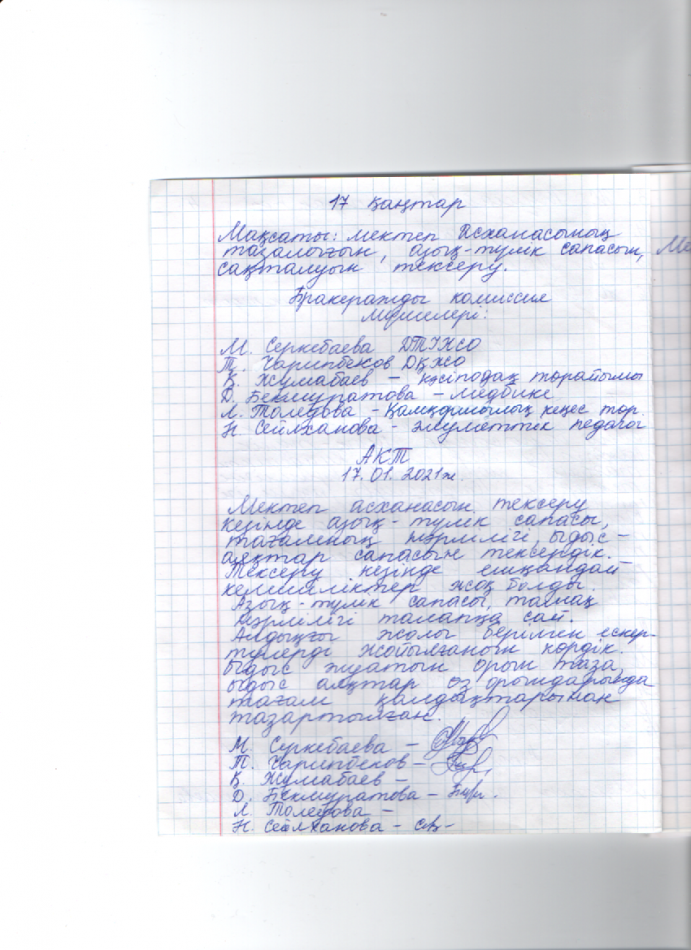 17 қаңтар
Мақсаты: мектеп Асханасының
тазалығын, азық-түлік сапасын,
сақталуын тексеру.
Бракеражды комиссия
мүшелері:
М. Серкебаева ДТІЖО
Т. Чарипбеков ДҚЖО
Қ. Жумабаев - кәсіподақ төрайымы
Д. Бекмуратова - медбике
Л. Толедова - Қамқоршылық кеңес төр.
Н. Сейлханова - әлуметтік педагог
АКТ
17.01.2021ж.
Мектеп асханасын тексеру
кезінде азық-түлік сапасы,
тағамның нәрлілігі, ыдыс-
аяқтар сапасын тексердік.
Тексеру кезінде ешқандай
кемшіліктер жоқ болды.
Азық-түлік сапасы, тамақ
нәрлілігі талапқа сай.
Алдыңғы жолғы берілген ескер-
тулерді жойылғанын көрдік.
Ыдыс жуатын орын таза,
ыдыс аяқтар өз орындарында
тағам қалдықтарынан
тазартылған.
М. Серкебаева -
Т. Чарипбеков -
Қ. Жумабаев -
Д. Бекмуратова -
Л. Толедова -
Н. Сейлханова -